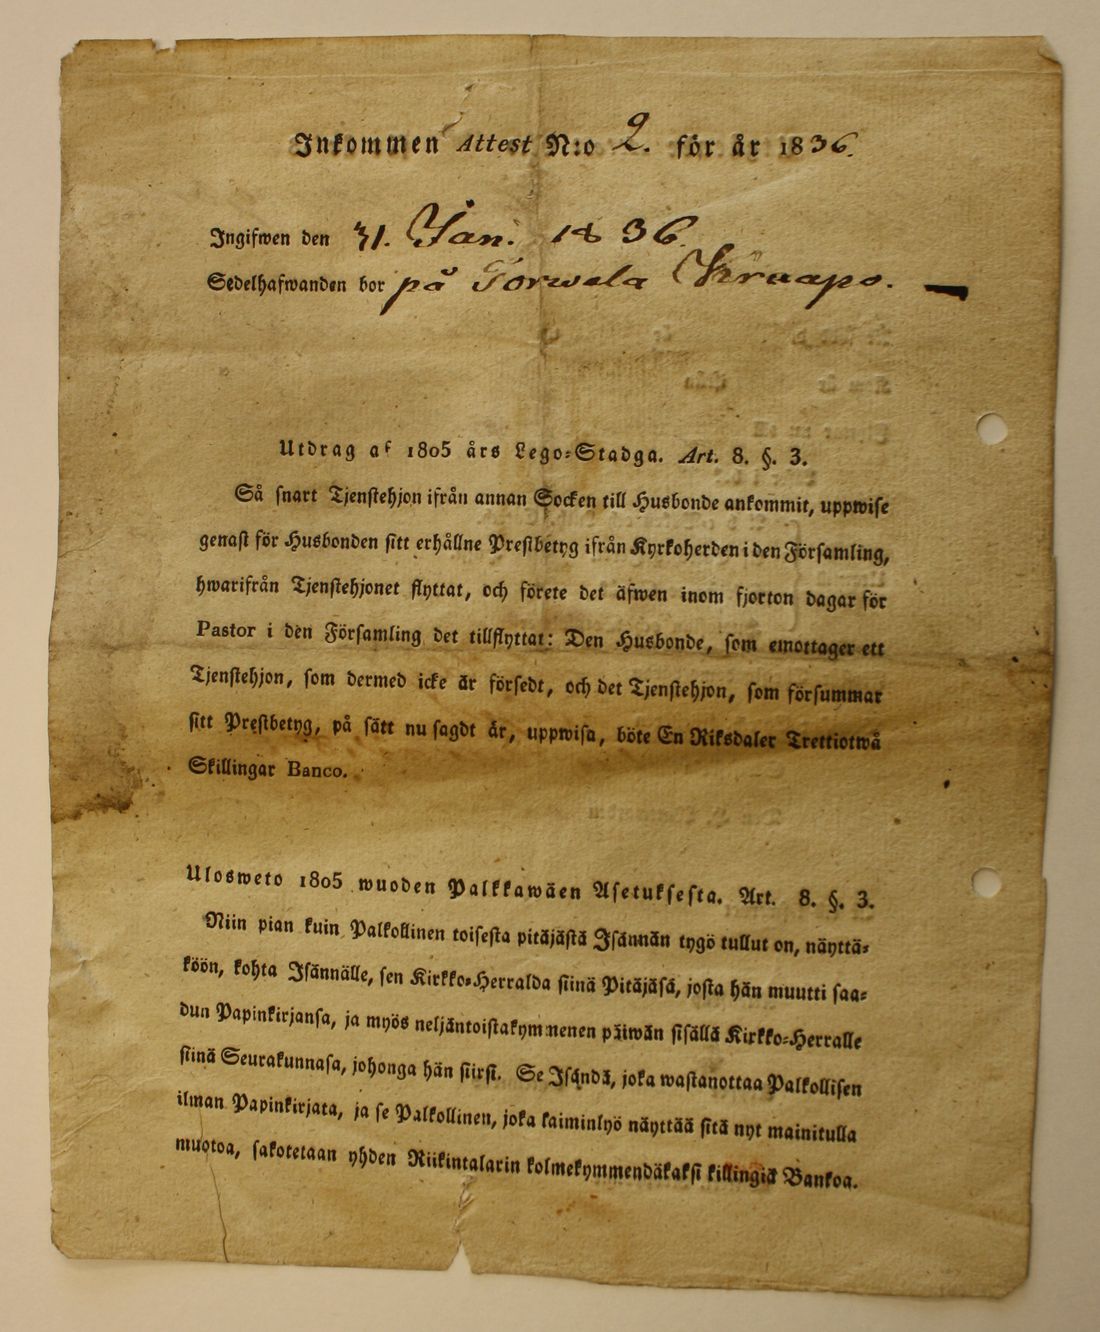 Inkommen Attest N:o 2. för år 1836.
Ingifwen den 31. Jan. 1836.
Sedelhafwanden bor på Torwela Knaapo. —
Utdrag af 1805 års Lego-Stadga. Art. 8. §. 3.
Så snart Tjenstehjon ifrån annan Socken till Husbonde ankommit, uppwise
genast för Husbonden sitt erhållne Prestbetyg ifrån Kyrkoherden i den Församling,
hwarifrån Tjenstehjonet flyttat, och förete det äfwen inom fjorton dagar för
Pastor i den Församling det tillflyttat: Den Husbonde, som emottager ett
Tjenstehjon, som dermed icke är försedt, och det Tjenstehjon, som försummar
sitt Prestbetyg, på sätt nu sagdt är, uppwisa, böte En Riksdaler Trettiotwå
Skillingar Banco.
Ulosweto 1805 wuoden Palkkawäen Asetuksesta. Art. 8. §. 3.
Niin pian kuin Palkollinen toisesta pitäjästä Isännän tygö tullut on, näyttä-
köön, kohta Isännälle, sen Kirkko-Herralda siinä Pitäjäsä, josta hän muutti saa-
dun Papinkirjansa, ja myös neljäntoistakymmenen päiwän sisällä Kirkko-Herralle
siinä Seurakunnasa, johonga hän siirsi. Se Isändä, joka wastanottaa Palkollisen
ilman Papinkirjata, ja se Palkollinen, joka kaiminlyö näyttää sitä nyt mainitulla
muotoa, sakotetaan yhden Riikintalarin kolmekymmendäkaksi killingiä Bankoa.